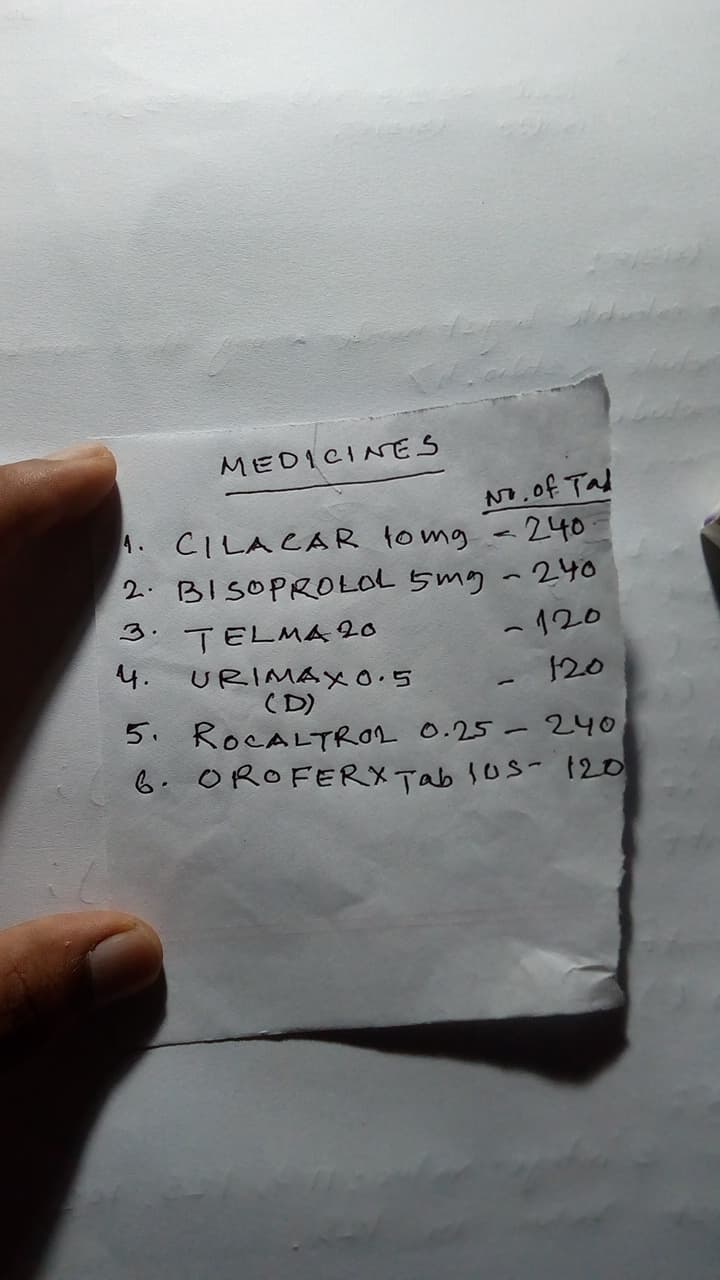 MEDICINES
No. of Tab
1. CILACAR 10mg - 240
2. BISOPROLOL 5mg - 240
3. TELMA 20 - 120
4. URIMAX 0.5 - 120
(D)
5. ROCALTROL 0.25 - 240
6. OROFERX Tab 10S - 120